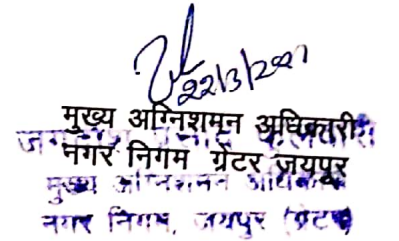 22/3/2021
मुख्य अग्निशमन अधिकारी
नगर निगम ग्रेटर जयपुर
मुख्य अग्निशमन
नगर निगम, जयपुर (ग्रेटर)